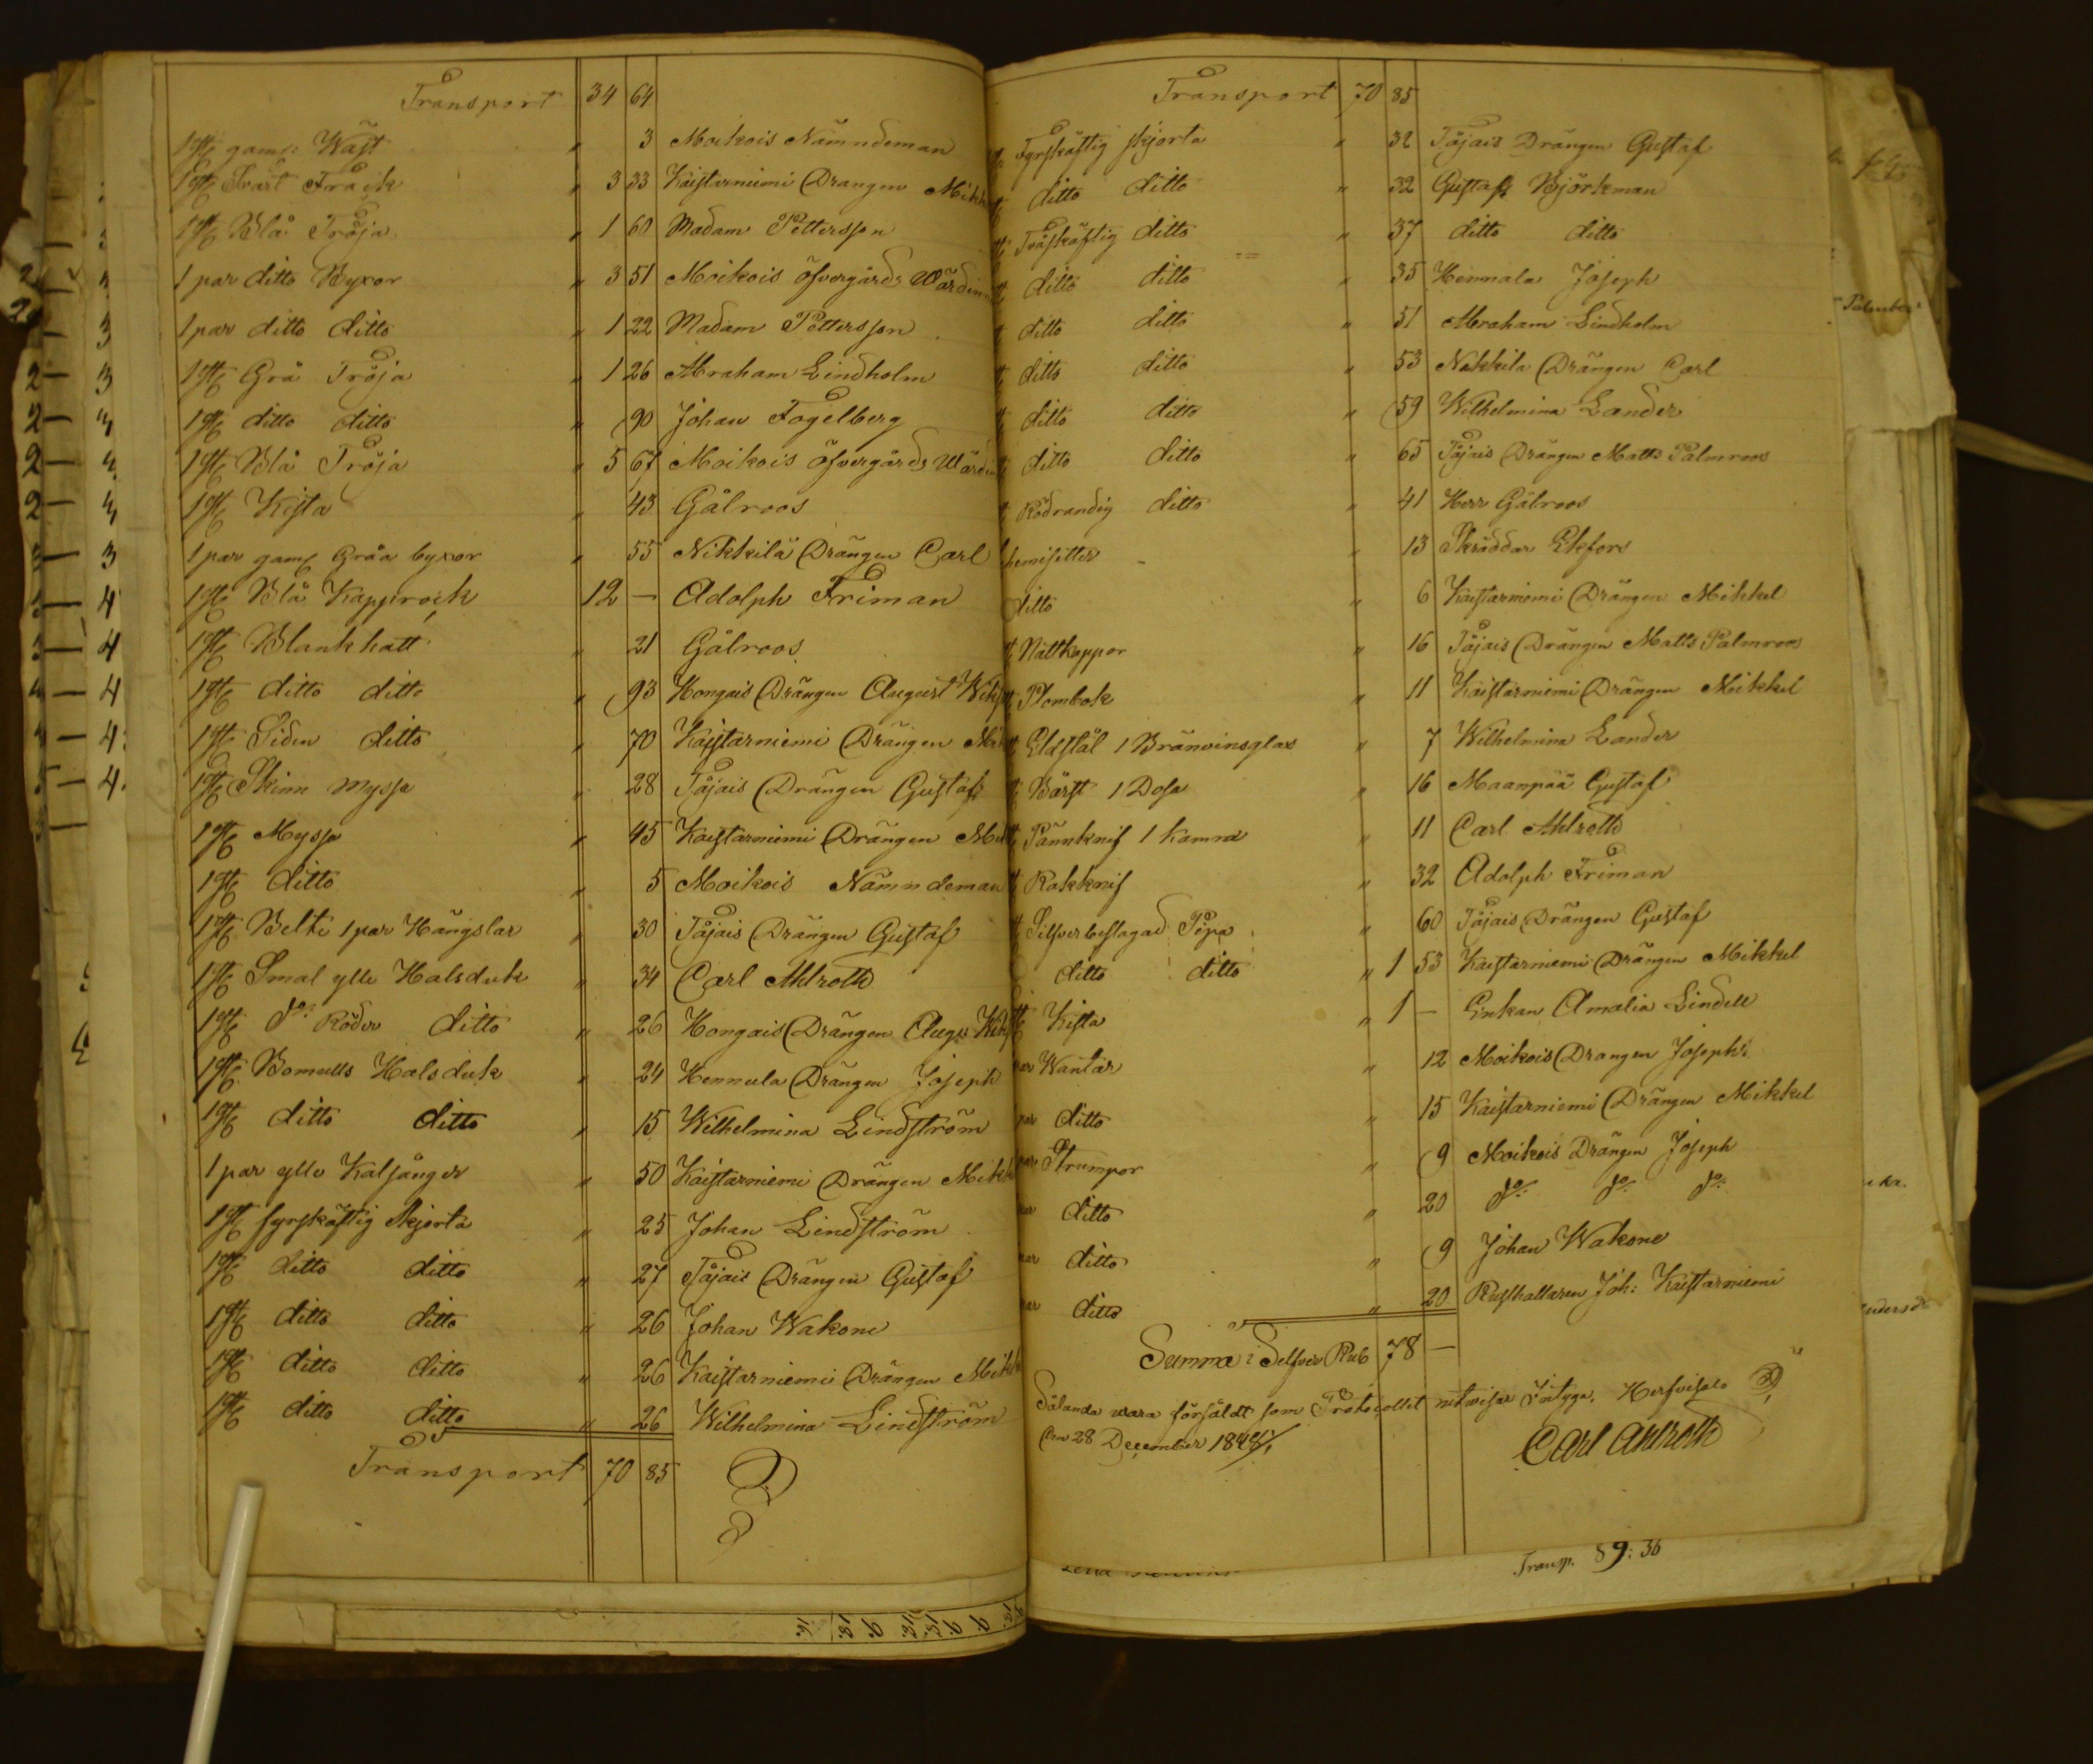 Transport 34 64
1 st gaml: Wäst " 3 Moikois Nämndeman
1 st Svart Frack " 3 33 Kaistarniemi Drängen Mikk
1 st Blå Tröja " 1 60 Madam Pettersson
1 par ditto Byxor " 3 51 Moikois öfvergårds Wärdinn
1 par ditto ditto " 1 22 Madam Pettersson
1 st Grå Tröja " 1 26 Abraham Lindholm
1 st ditto ditto " 90 Johan Fogelberg
1 st Blå Tröja " 5 67 Moikois öfvergårds Wärdin
1 st Kista " 43 Gålroos
1 par gaml Gråa byxor " 55 Nikkilä Drängen Carl
1 st Blå Kapprock 12 — Adolph Friman
1 st Blank hatt " 21 Gålroos
1 st ditto ditto " 93 Hongais Drängen August Wik
1 st Siden ditto " 70 Kaistarniemi Drängen Mi
1 st Skinn myssa " 28 Tåjais Drängen Gustaf
1 st Myssa " 45 Kaistarniemi Drängen Mik
1 st ditto " 5 Moikois Nämndeman
1 st Belte 1 par Hängslar " 30 Tåjais Drängen Gustaf
1 st Smal ylle Halsduk " 34 Carl Ahlroth
1 st do: Röder ditto " 26 Hongais Drängen Aug. Wik
1 st Bomulls Halsduk " 24 Hennula Drängen Joseph
1 st ditto ditto " 15 Wilhelmina Lindström
1 par ylle Kalsånger " 50 Kaistarniemi Drängen Mikk
1 st fyrskäftig skjorta " 25 Johan Lindström
1 st ditto ditto " 27 Tåjais Drängen Gustaf
1 st ditto ditto " 26 Johan Wakone
1 st ditto ditto " 26 Kaistarniemi Drängen Mikk
1 st ditto ditto " 26 Wilhelmina Lindström
Transport 70 85
Transport 70 85
Fyrskäftig skjorta " 32 Tåjais Drängen Gustaf
ditto ditto " 32 Gustaf Björkman
Tvåskäftig ditto " 37 ditto ditto
ditto ditto " 35 Hennala Joseph
ditto ditto " 51 Abraham Lindholm
ditto ditto " 53 Nikkila Drängen Carl
ditto ditto " 59 Wilhelmina Lander
ditto ditto " 65 Tåjais Drängen Matts Palmroos
Rödrandig ditto " 41 Herr Gålroos
hemisetter " 13 Skräddar Ekfors
ditto " 6 Kaistarniemi Drängen Mikkel
Nattkappor " 16 Tåjais Drängen Matts Palmroos
Plombok " 11 Kaistarniemi Drängen Mikkel
Eldstål 1 Bränvinsglas " 7 Wilhelmina Lander
Bärst 1 Dosa " 16 Maanpää Gustaf
Pännknif 1 Kamm " 11 Carl Ahlroth
Rakknif " 32 Adolph Friman
Silfverbeslagad Pipa " 60 Tåjais Drängen Gustaf
ditto ditto " 1 53 Kaistarniemi Drängen Mikkel
Kista " 1 — Enkan Amalia Lindell
Wantar " 12 Moikois Drangen Joseph
par ditto " 15 Kaistarniemi Drängen Mikkel
par Strumpor " 9 Moikois Drängen Joseph
ditto " 20 do: do: do:
ditto " 9 Johan Wakone
ditto " 20 Rusthallaren Joh: Kaistarniemi
Summa i Selfver Rub 78 —
Sålunda vara försåldt som Protocollet utvisar Intyga.
Den 28 December 1848
Carl Ahlroth
Transp. 89: 36